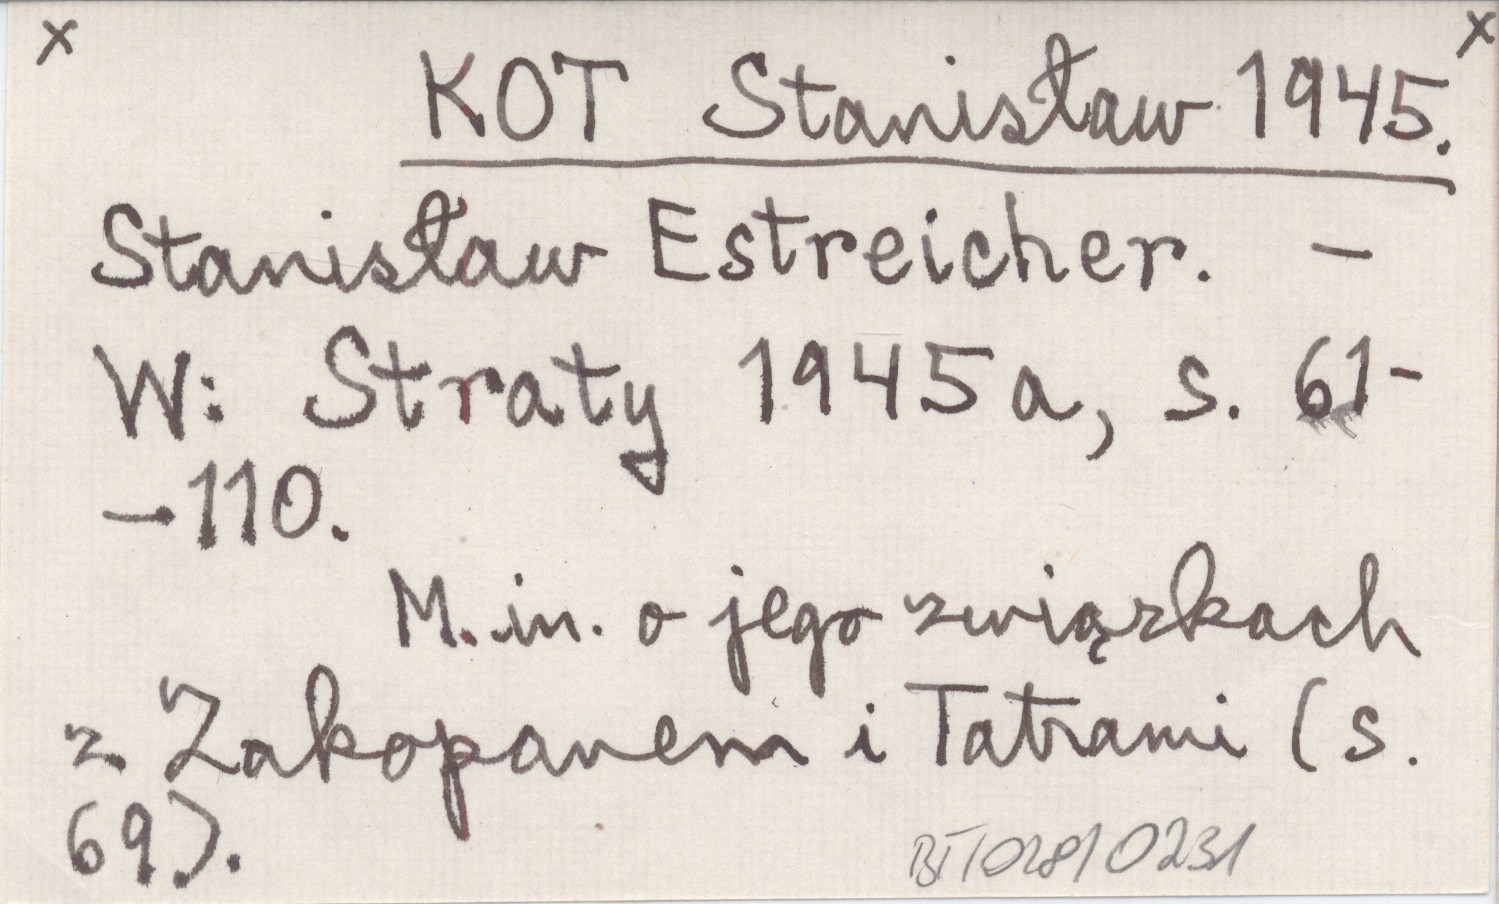 x x
KOT Stanisław 1945.
Stanisław Estreicher. –
W: Straty 1945a, s. 61-
-110.
M.in. o jego związkach
z Zakopanem i Tatrami (s.
69).
BT/028/0231